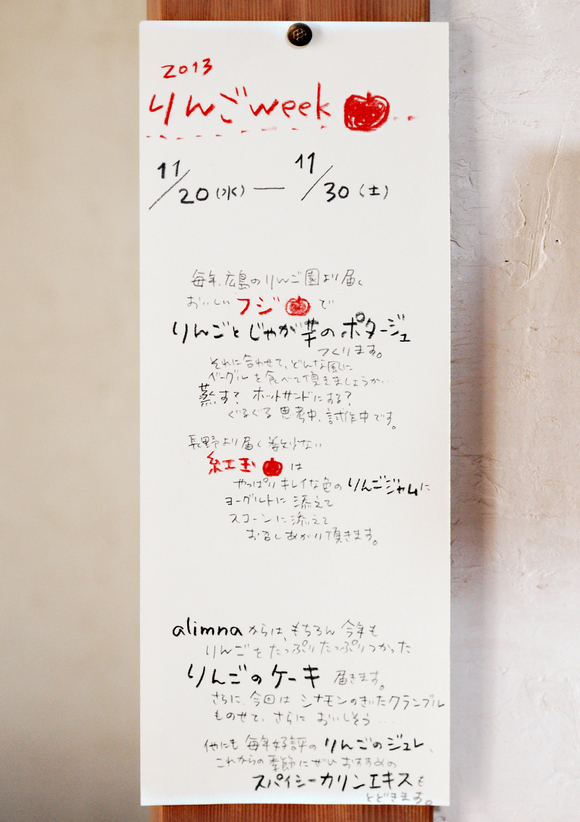 2013
りんごweek
11/20(水) — 11/30(土)
毎年、広島のりんご園より届く
おいしいフジで
りんごとじゃが芋のポタージュ
つくります。
それに合わせて、どんな風に
ベーグルを食べて頂きましょうか..
蒸す? ホットサンドにする?
ぐるぐる思考中、試作中です。
長野より届く希少ない
紅玉は
やっぱりキレイな色のりんごジャムに
ヨーグルトに添えて
スコーンに添えて
お召しあがり頂きます。
alimnaからは、もちろん今年も
りんごをたっぷりたっぷりつかった
りんごのケーキ 届きます。
さらに、今回はシナモンのきいたクランブル
ものせて、さらにおいしそう...
他にも毎年好評のりんごのジュレ、
これからの季節にぜひおすすめの
スパイシーカリンエキスも
とどきます。